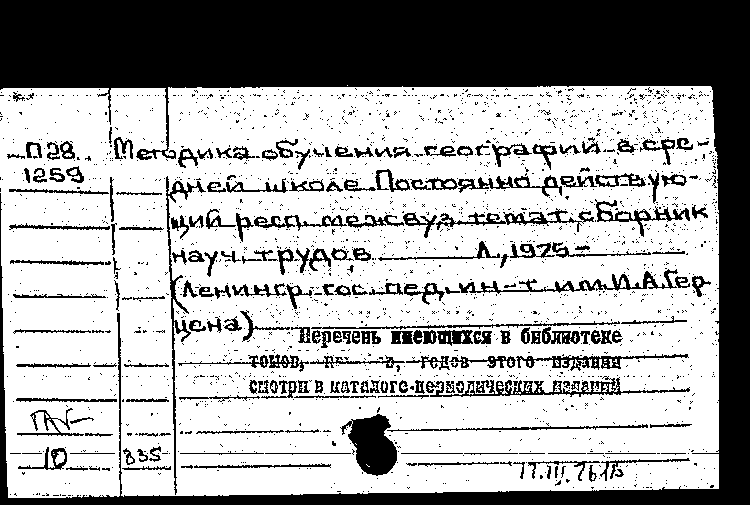 П28 Методика обучения географии в сре-
1259 дней школе. Постоянно действую-
щий респ. межвуз. темат. сборник
науч. трудов Л., 1975-
(Ленингр. гос. пед. ин-т им. И.А. Гер-
цена)
Перечень имеющихся в библиотеке
томов, годов этого издания
смотри в каталоге периодических изданий
10 835